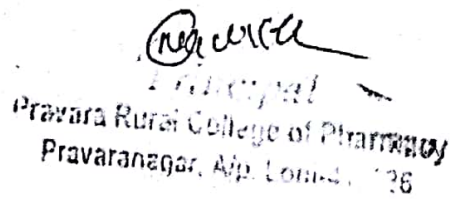 Principal
Pravara Rural College of Pharmacy
Pravaranagar, A/p. Loni-4